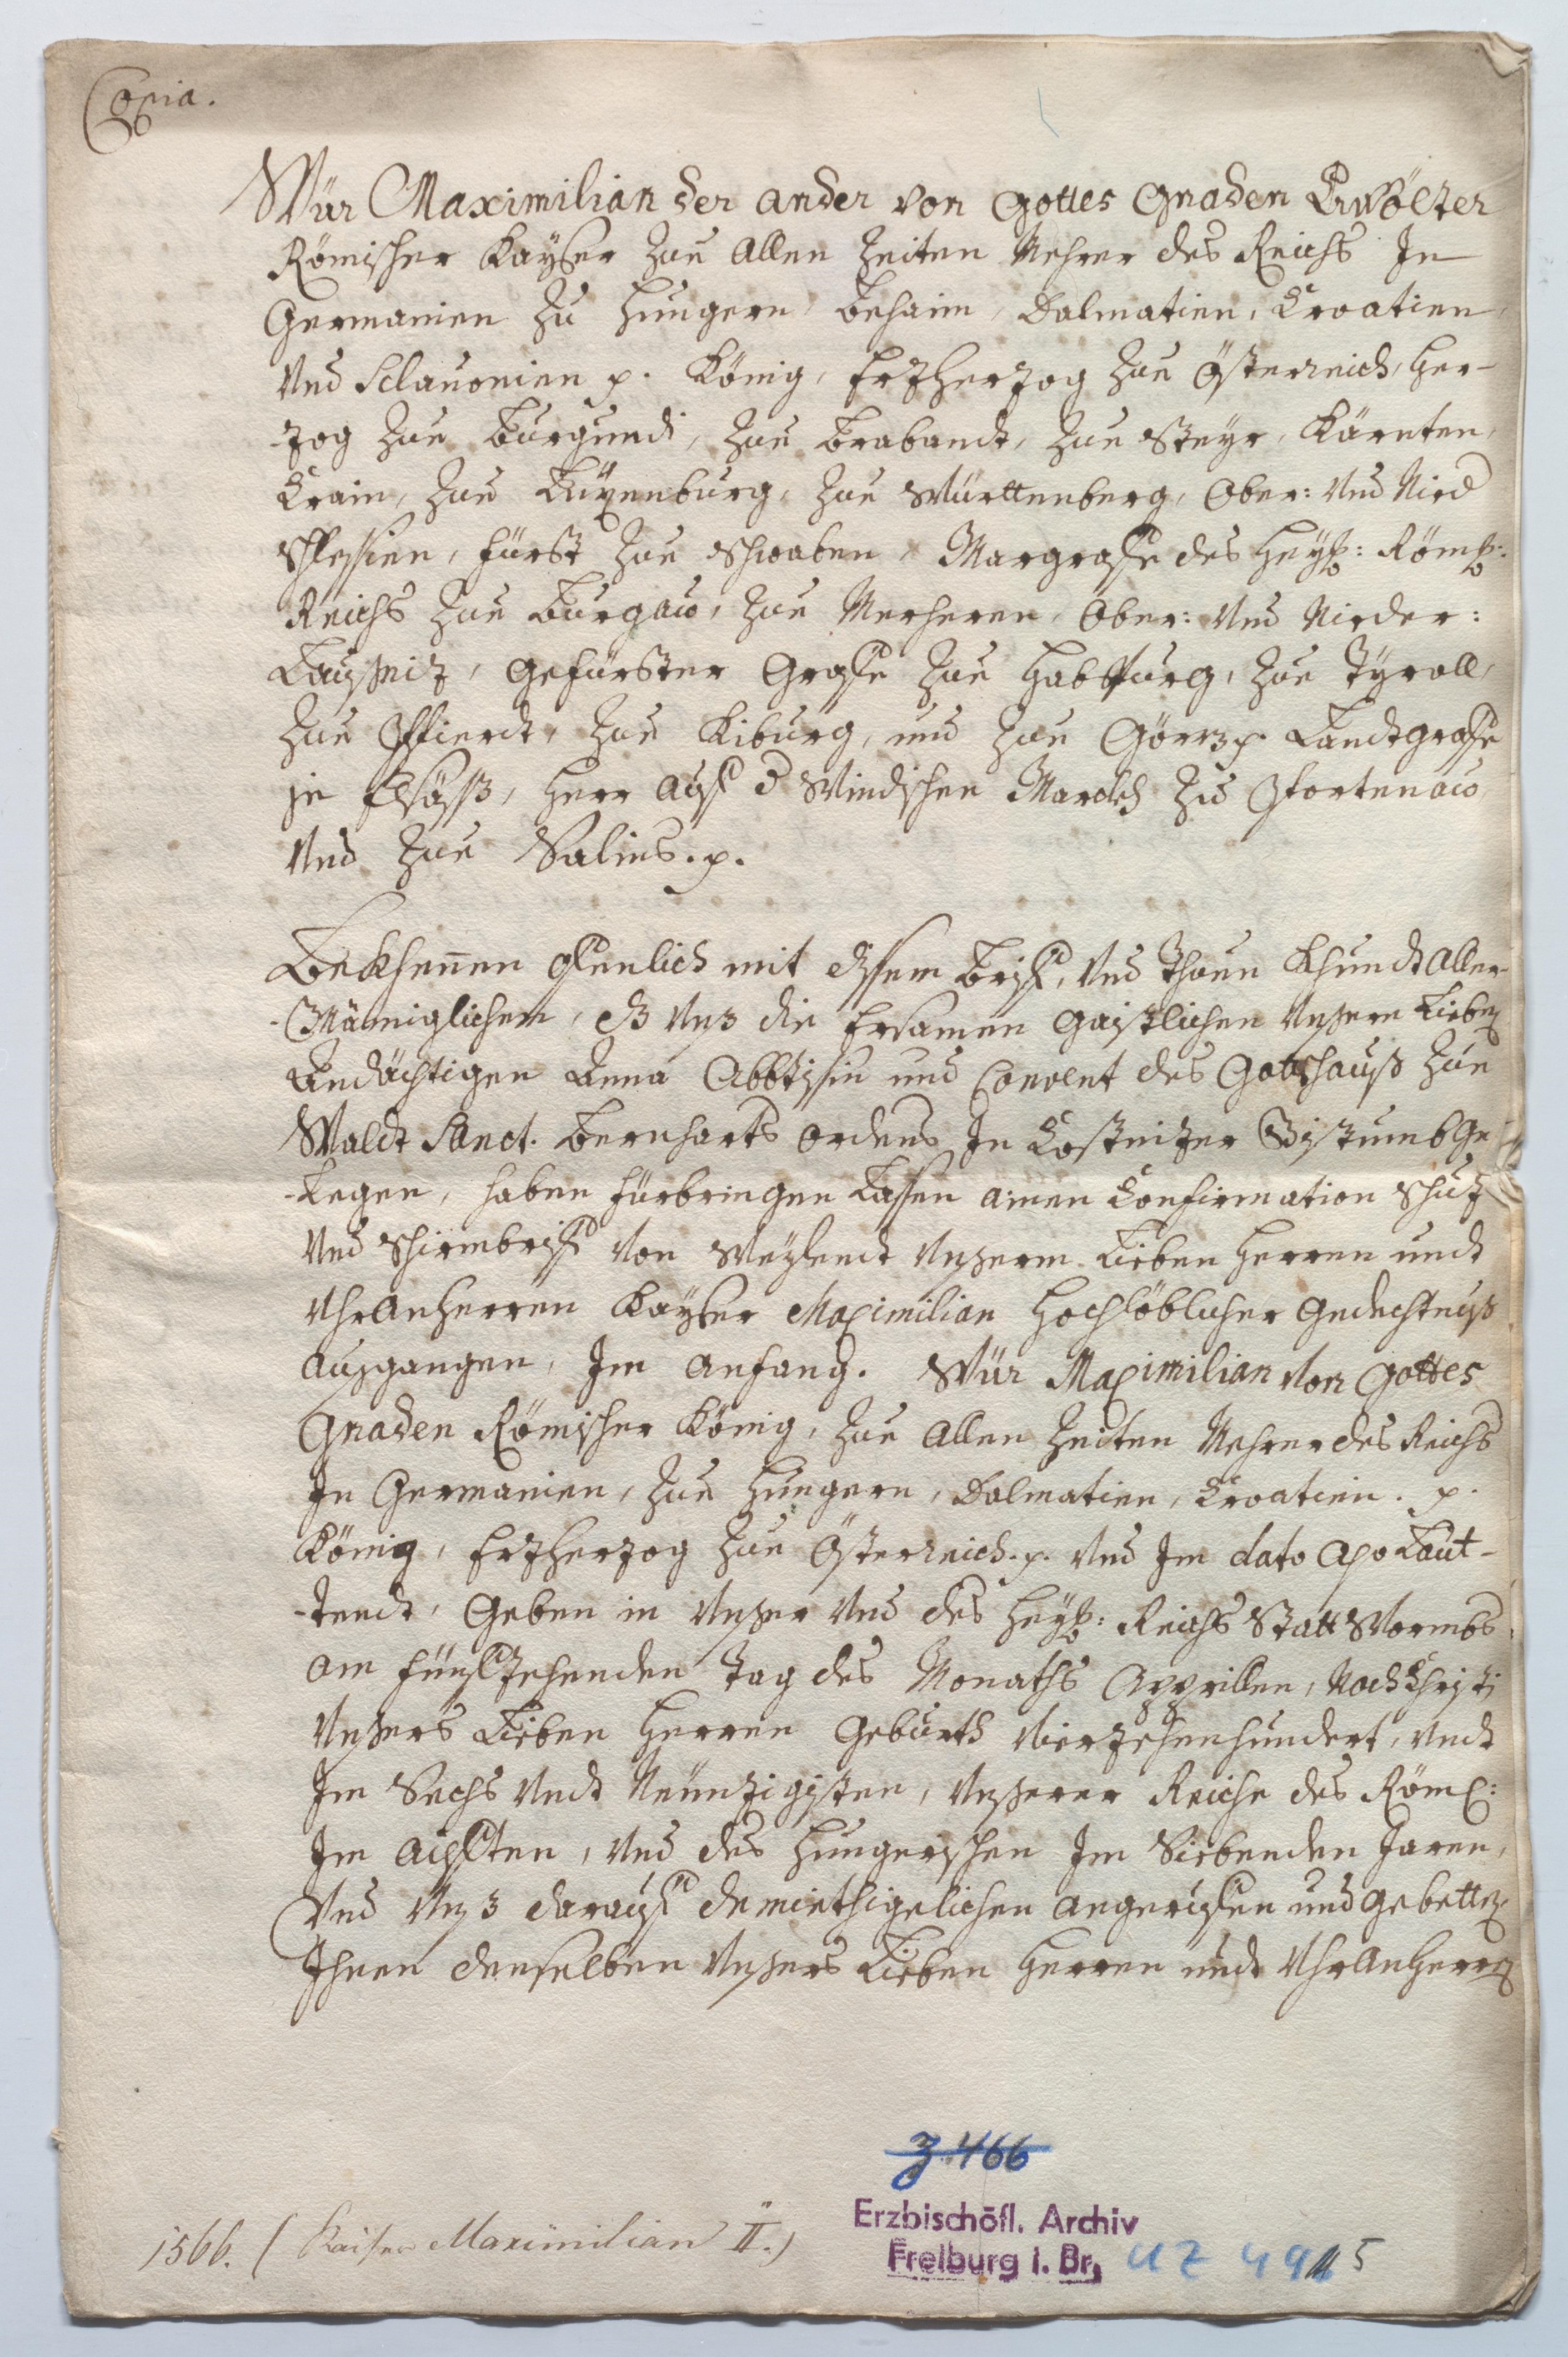 Copia.
Wür Maximilian der ander von Gottes Gnaden Erwölter
Römischer Kayser zue Allen Zeiten Mehrer des Reichs In
Germanien zu Hungern, Behaim, Dalmatien, Croatien,
Vnd Sclauonien p. König, Ertzhertzog zue Österreich, Her-
-zog zue Burgundi, zue Brabandt, zue Steyr, Kärnten,
Crain, zue Luzenburg, zue Württenberg, Ober: Vnd Nied
Schlesien, Fürst zue Schwaben, Margraffe des Heyl: Röm:
Reichs zue Burgaw, zue Merheren, Ober: Vnd Nieder:
Laußniz, Gefürster Graffe zue Habspurg, zue Tyroll,
zue Pfierdt, zue Kiburg, und zue Görz p. Landtgraffe
in Elsäß, Herr Auff d Windischen Marckh zu Portenaw
Vnd zue Salins. p.
Bekhennen offenlich mit disem Brieff, Vnd Thuen Khundt Aller-
-Mäniglichem, dz Vnß die Ersamen Gaistlichen Vnßere Lieben
Andächtigen Anna Abbtissin und Convent des Gottshauß zue
Waldt Sanct. Bernharts Ordens In Costnitzer Bistumb Ge-
-legen, haben fürbringen Lassen ainen Confirmation Schuz
Vnd Schirmbrieff Von Weylendt Vnßerm Lieben Herren undt
VhrAnherren Kayser Maximilian Hochlöblicher Gedechtnuß
Außgangen, Im Anfang. Wür Maximilian Von Gottes
Gnaden Römischer König, zue Allen Zeiten Mehrer des Reichs
In Germanien, zue Hungern, Dalmatien, Croatien. p.
König, Ertzhertzog zue Österreich. p. Vnd Im dato Also Laut-
-tendt, Geben in Vnßer Vnd des Heyl: Reichs Statt Wormbs
Am fünffzehenden Tag des Monaths Apprillen, Nach Christi
Vnßers Lieben Herren Geburth Vierzehenhundert, Vndt
Im Sechs Vndt Neünzigisten, Vnßerer Reiche des Röm:
Im Ailfften, Vnd des Hungerischen Im Siebenden Jaren,
Vnd Vnß darauff demiethigelichen Angerüeffen und Gebetten,
Ihnen denselben Vnßers Lieben Herren undt VhrAnherren
Z. 466
1566. (Kaiser Maximilian II.)
Erzbischöfl. Archiv
Freiburg i. Br.
UZ 4915